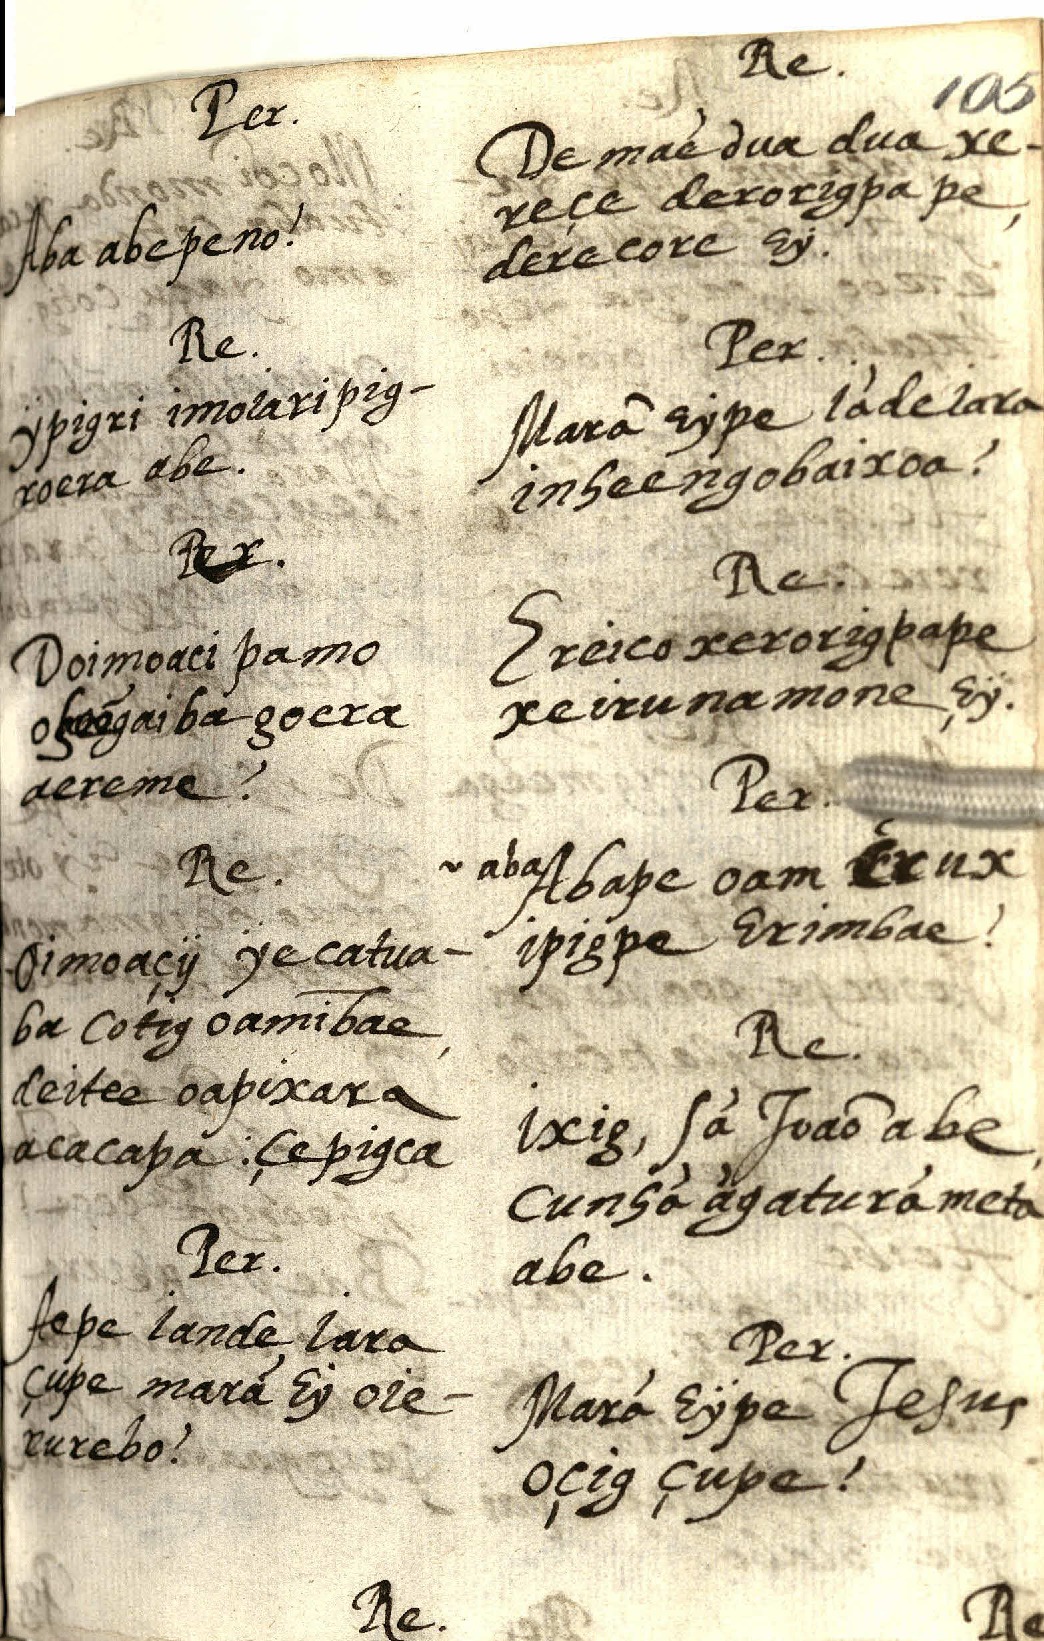 105
Per.
Aba abepeno?
Re.
ÿpigri imoiaripig-
roera abe.
Per.
Doimoaci pamo
gaiba goera
aereme?
Re.
Oimoaçÿ ÿecatua-
ba cotig oamībae,
deitee oapixara
acacapa: çepigca
Per.
Aepe iande iara
çupe marã Eÿ oie-
rurebo?
Re.
Re.
De maẽ dua dua xe-
reçe derorigpa pe,
derecore Eÿ.
Per.
Marã Eÿpe iãdeiara
inheengobaixoa?
Re.
Ereico xerorigpape
xeirunamone Eÿ.
Per.
~ aba
Abape oam Erux
ipigpe Erimbae?
Re.
Ixig, Sã Joaõ abe,
cunhã ãgaturãmeta
abe.
Per.
Marã Eÿpe Jesus
oçig çupe?
Re